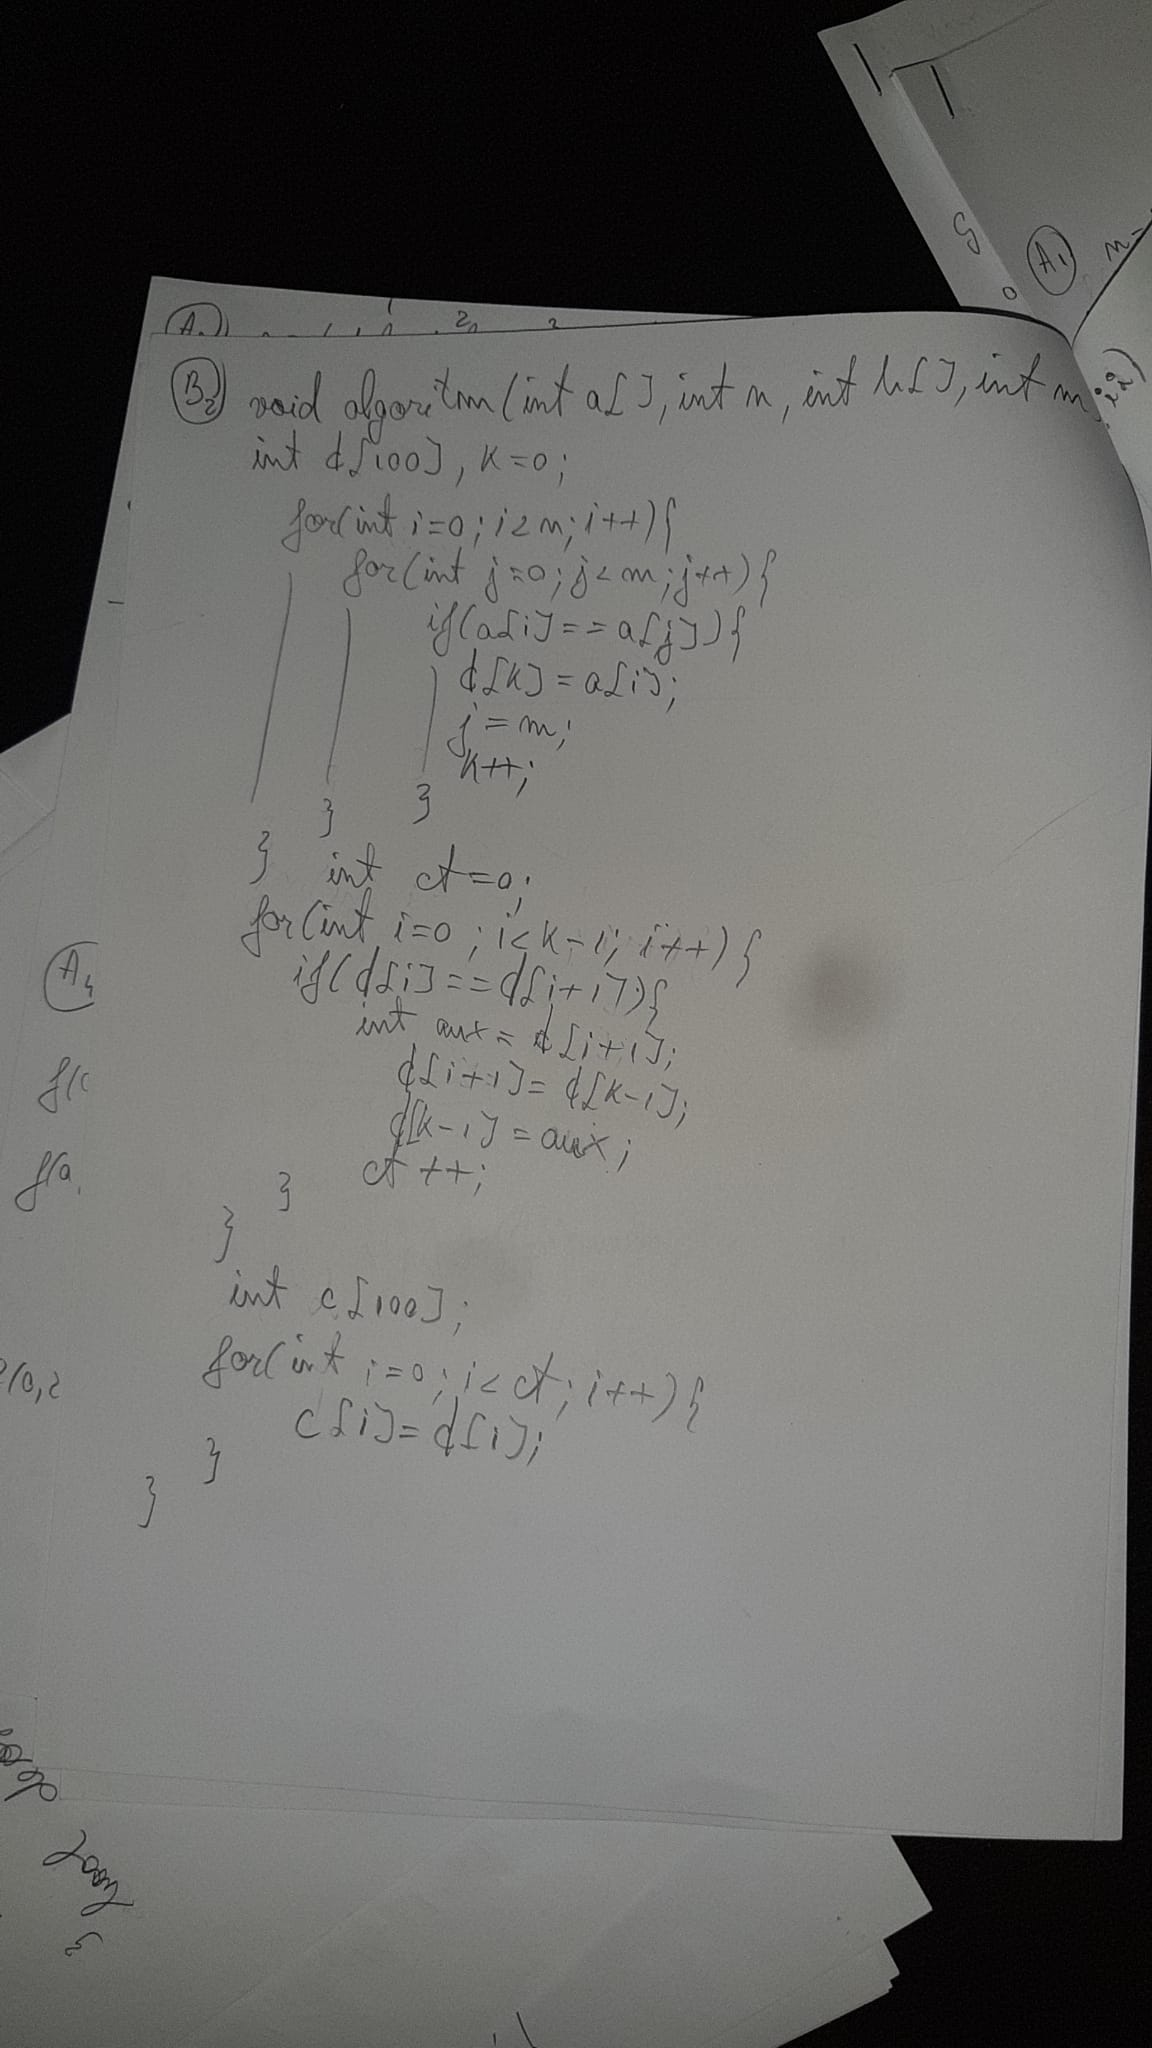 G
o
A1
B2 void algoritm(int a[], int n, int b[], int m
int d[100], k=0;
for(int i=0; i<n; i++){
for(int j=0; j<m; j++){
if(a[i]==a[j]){
d[k]=a[i];
j=m;
k++;
}
}
} int ct=0;
for(int i=0; i<k-1; i++){
if(d[i]==d[i+1]){
int aux=d[i+1];
d[i+1]=d[k-1];
d[k-1]=aux;
ct++;
}
}
int c[100];
for(int i=0; i<ct; i++){
c[i]=d[i];
}
}
A4
f(
f(a,
(0,2